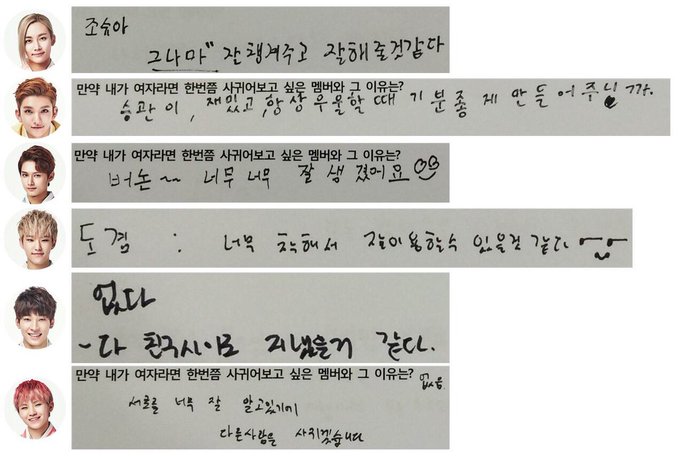 조슈아
그나마" 잘챙겨주고 잘해줄것같다
만약 내가 여자라면 한번쯤 사귀어보고 싶은 멤버와 그 이유는?
승관이, 재밌고, 항상 우울할때 기분좋게 만들어주니까.
만약 내가 여자라면 한번쯤 사귀어보고 싶은 멤버와 그 이유는?
버논~ 너무 너무 잘 생겼어요
도겸 : 너무 착해서 잘이용할수 있을것 같다
없다
-다 친구사이로 지냈을거 같다.
만약 내가 여자라면 한번쯤 사귀어보고 싶은 멤버와 그 이유는? 없음
서로를 너무 잘 알고있기에
다른사람을 사귀겠습니다